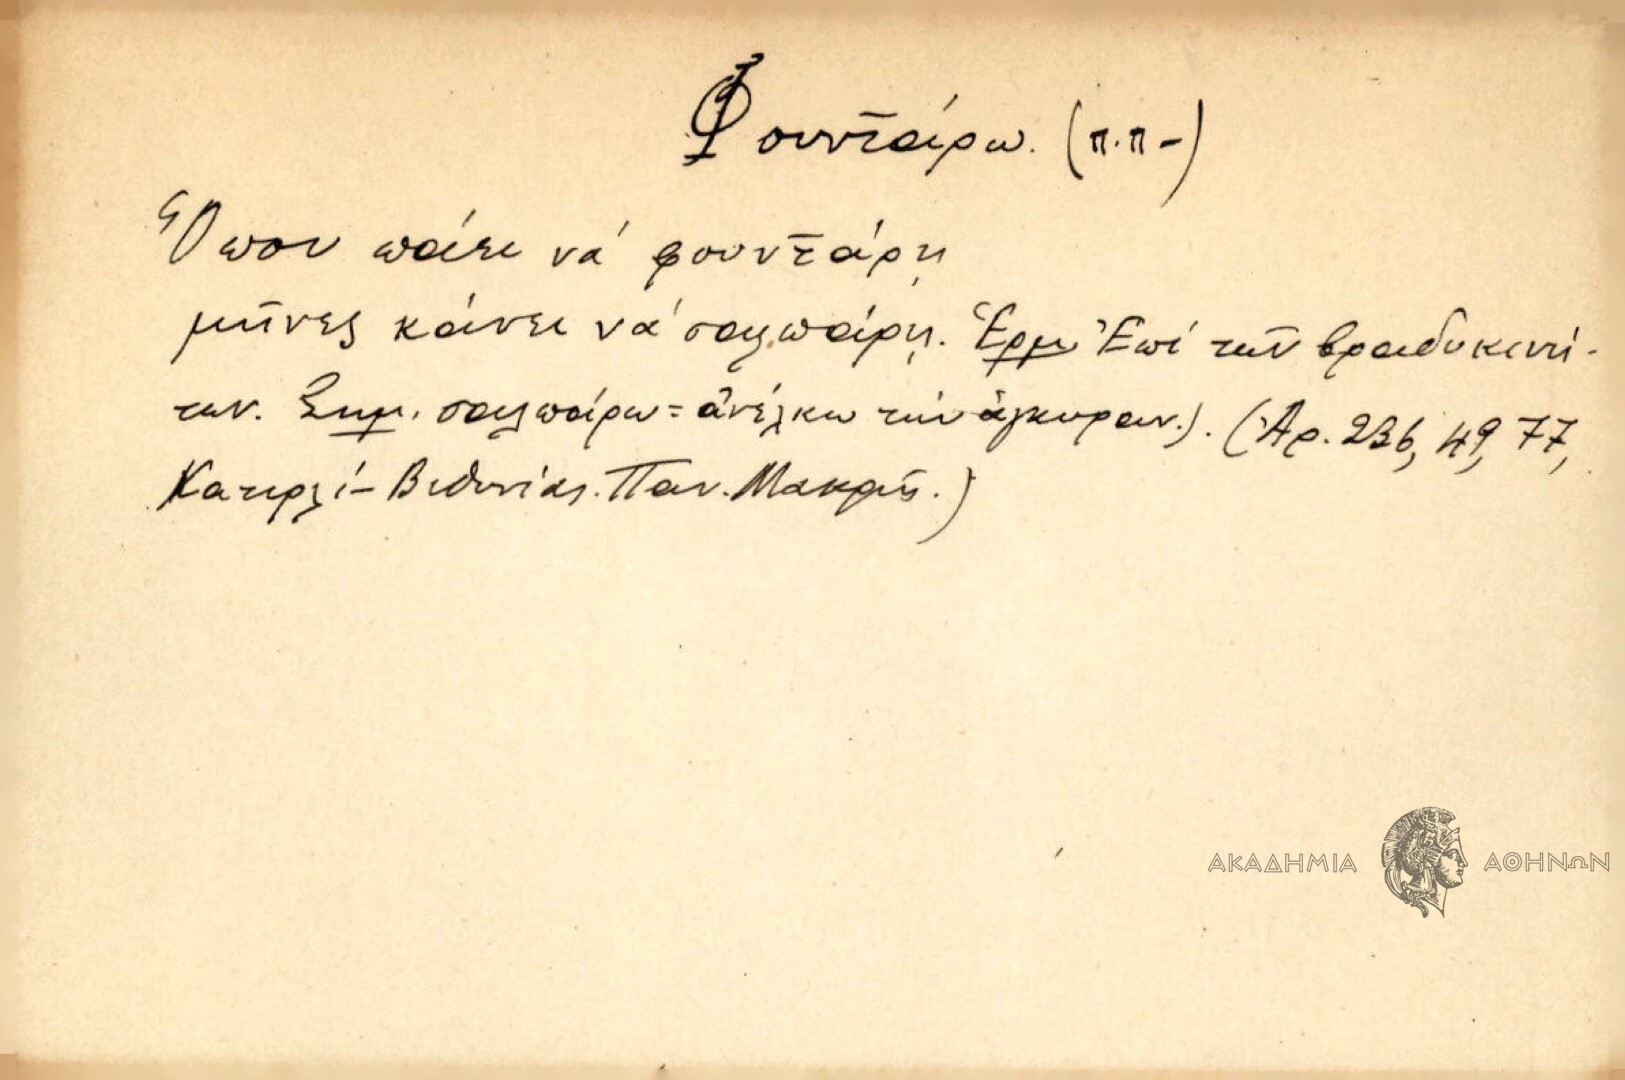 Φουντάρω. (π.π-)
Ὅπου πάει νά φουντάρῃ
μῆνες κάνει νά σαλπάρῃ. Ἑρμ. Ἐπί τῶν βραδυκινή-
των. Σημ. σαλπάρω = ἀνέλκω τήν ἄγκυραν.). (Ἀρ. 236, 49, 77,
Κατιρλί - Βιθυνίας. Παν. Μακρῆς.)
ΑΚΑΔΗΜΙΑ ΑΘΗΝΩΝ